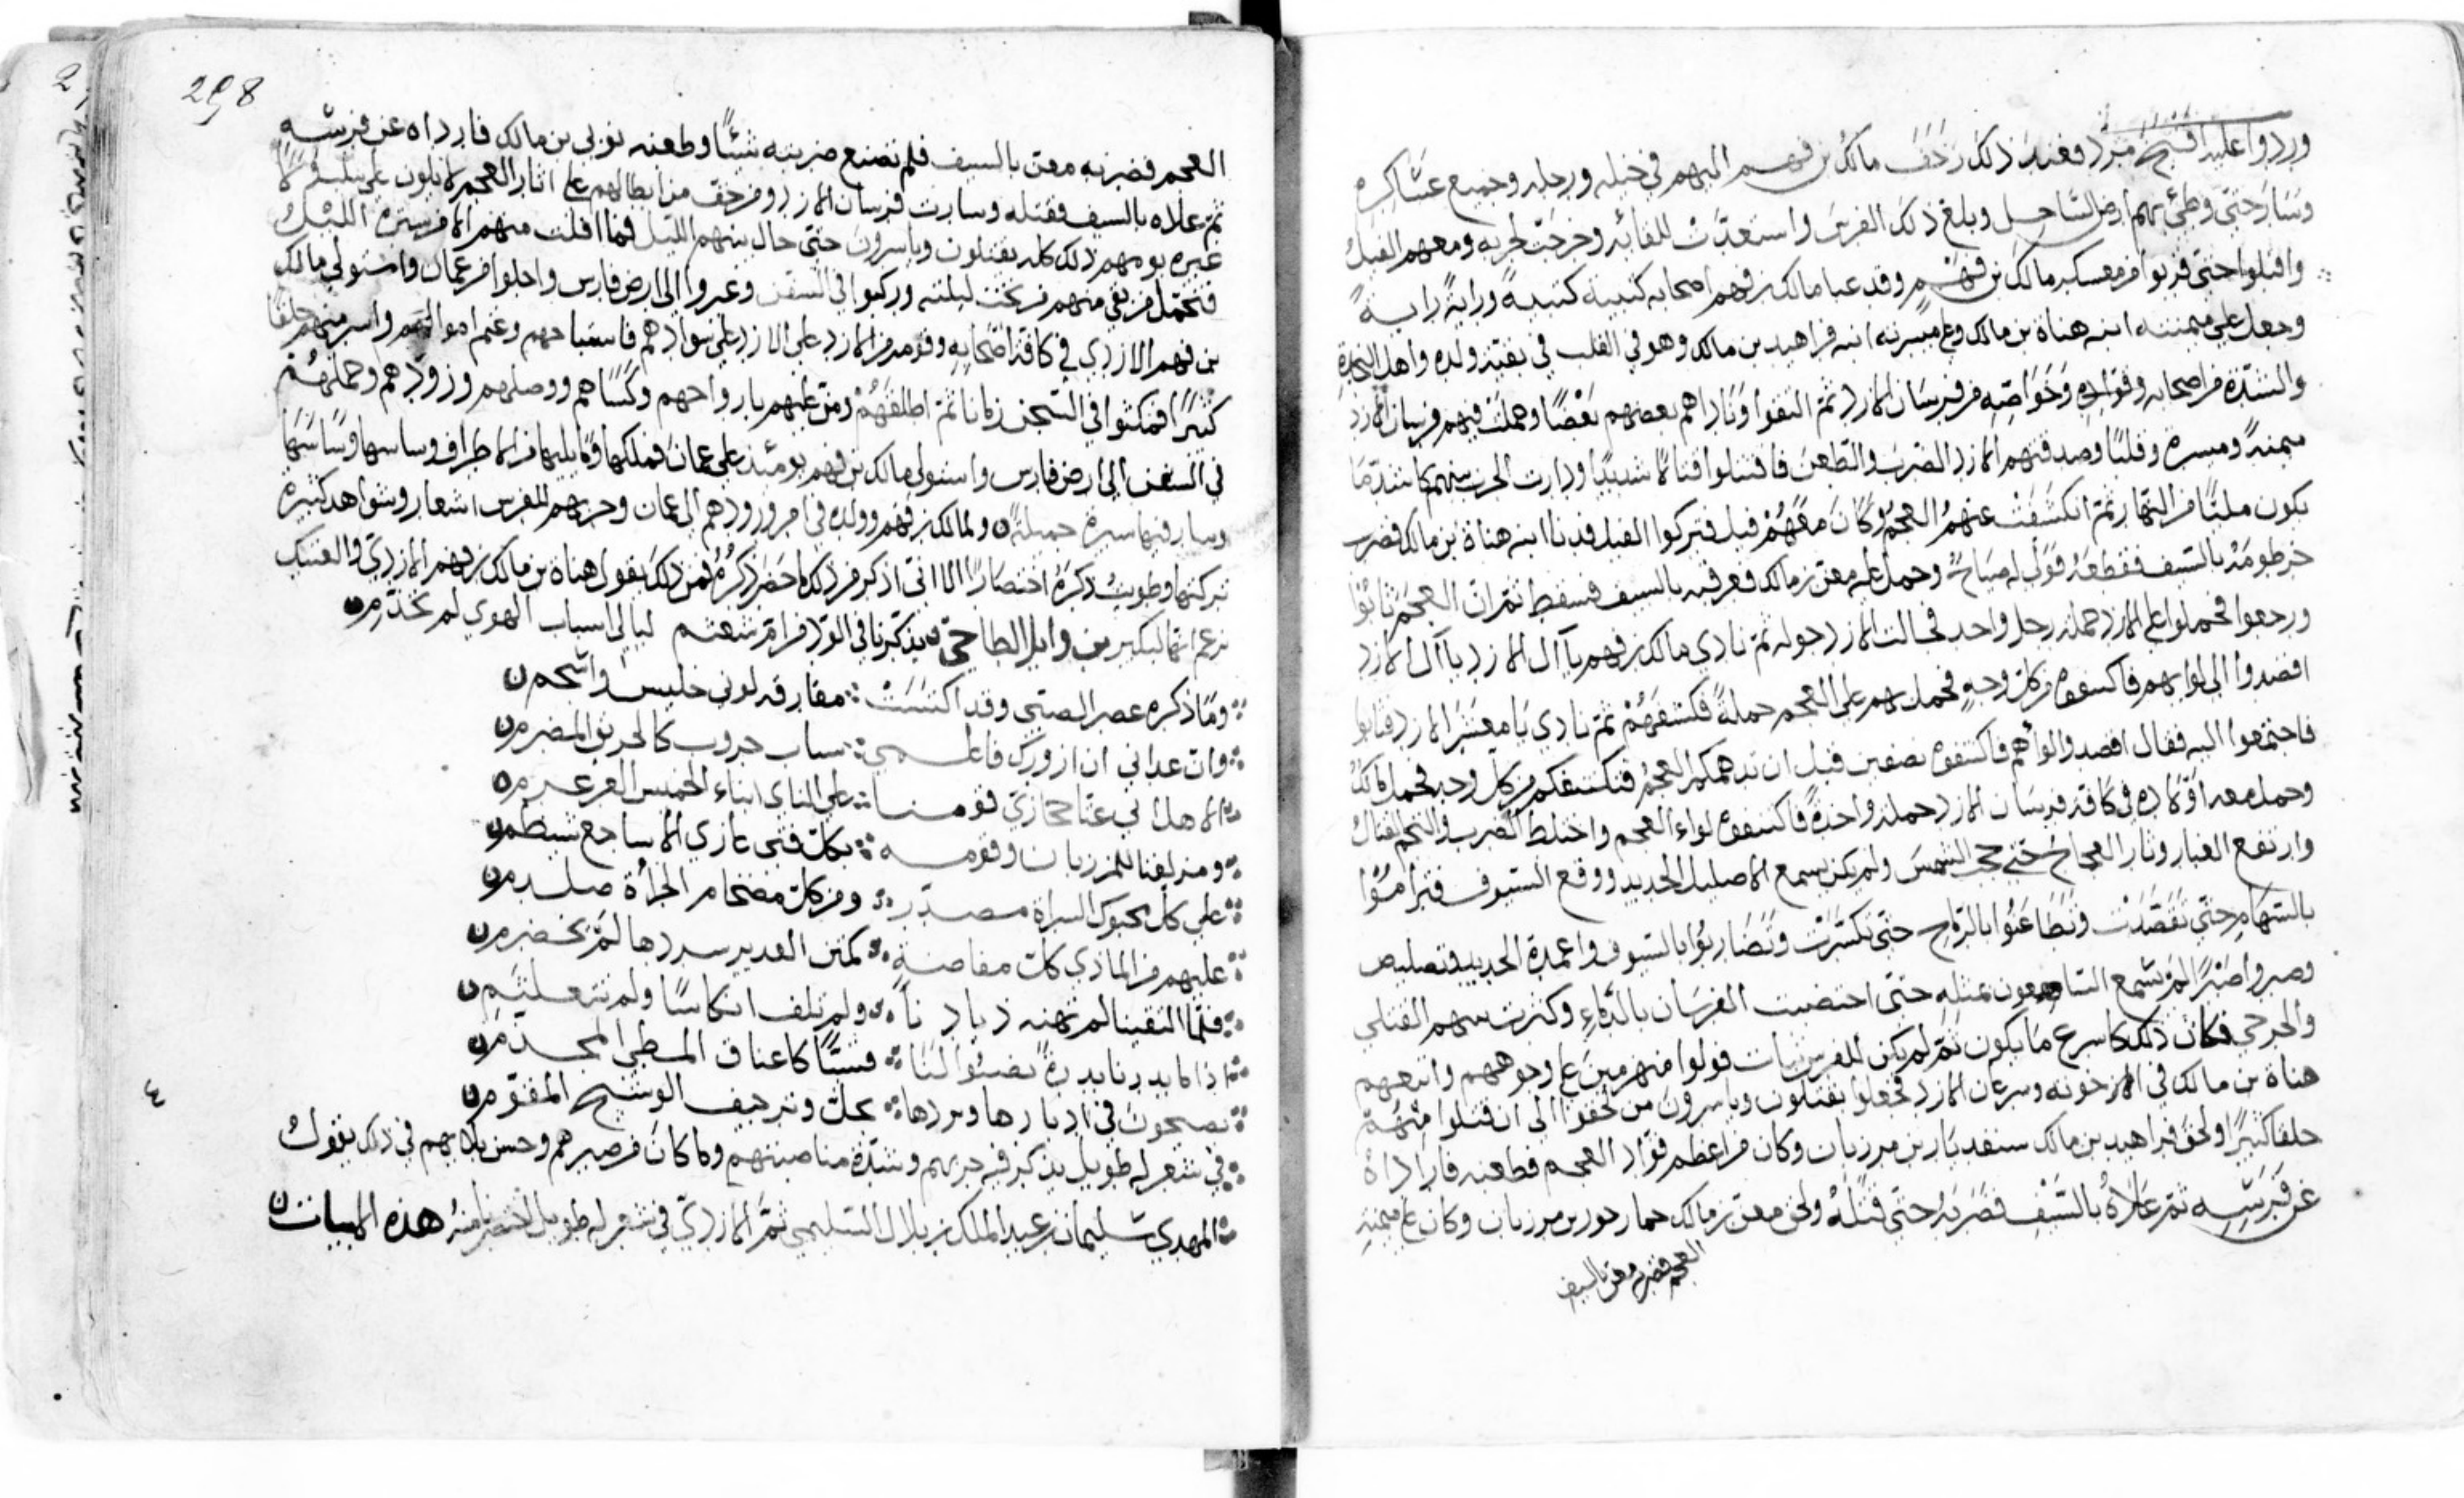 وردوا عليه اقبح مرد فعند ذلك زحف مالك بن فهم اليهم في خيله ورجله وجميع عساكره
وسار حتى وطئ بهم ارض الساحل وبلغ ذلك الفرس واستعدت للقائه وخرجت لحربه ومعهم الفيل
واقبلوا حتى قربوا من معسكر مالك بن فهم وقد عبا مالك بن فهم اصحابه كتيبة كتيبة وراية راية
وجعل على ميمنته ابنه هناة بن مالك وعلى ميسرته ابنه فراهيد بن مالك وهو في القلب في بقية ولده واهل النجدة
والشدة من اصحابه وقواده وخواصه من فرسان الازد ثم التقوا وتاراهم بعضهم بعضا وحملت فيهم فرسان الازد
ميمنة وميسرة وقلبا وصدقتهم الازد الضرب والطعن فاقتتلوا قتالا شديدا ودارت الحرب بينهم كاشد ما
يكون مليا من النهار ثم انكشفت عنهم العجم وكان معهم فيل فتركوا الفيل فدنا ابنه هناة بن مالك فضرب
خرطومه بالسيف فقطعه فولى له صياح وحمل عليه معن بن مالك فعرقبه بالسيف فسقط ثم ان العجم ثابوا
ورجعوا فحملوا على الازد حملة رجل واحد فجالت الازد جولة ثم نادى مالك بن فهم يا آل الازد يا آل الازد
اقصدوا الى لوايهم فاكشفوه من كل وجه فحمل بهم على العجم حملة فكشفهم ثم نادى يا معشر الازد فثابوا
فاجتمعوا اليه فقال اقصدوا لواهم فاكشفوه بصفين قبل ان تدهمكم العجم فتكشفكم من كل وجه فحمل مالك
وحمل معه اولاده في كافة فرسان الازد حملة واحدة فاكشفوه لواء العجم واختلط الضرب والتحم القتال
وارتفع الغبار وثار العجاج حتى حجب الشمس ولم يكن يسمع الا صليل الحديد ووقع السيوف فتراموا
بالسهام حتى تقصدت وتطاعنوا بالرماح حتى تكسرت وتضاربوا بالسيوف واعمدة الحديد
وصبروا صبرا لم يسمع السامعون بمثله حتى اختضبت الفرسان بالدماء وكثرت بينهم القتلى
والجرحى فكان ذلك كاسرع ما يكون ثم لم يكن للفرس ثبات فولوا منهزمين على وجوههم واتبعهم
هناة بن مالك في اخوته وسرعان الازد فجعلوا يقتلون وياسرون من لحقوا الى ان قتلوا منهم
خلقا كثيرا ولحق فراهيد بن مالك سنفديار بن مرزبان وكان من اعظم قواد العجم فطعنه فارداه
عن فرسه ثم علاه بالسيف فضربه حتى قتله ولحق معن بن مالك بن مرزبان وكان على ميمنة
العجم فضربه معن بالسيف
298
العجم فضربه معن بالسيف فلم تصنع ضربته شيئا وطعنه نوى بن مالك فارداه عن فرسه
ثم علاه بالسيف فقتله وسارت فرسان الازد ومن خف من ابطالهم على اثار العجم لا يلوون على
غيره يومهم ذلك كله يقتلون وياسرون حتى حال بينهم الليل فما افلت منهم الا من ستره الليل
فتحمل من بقي منهم من تحت ليلته وركبوا في السفن وعبروا الى ارض فارس واجلوا من عمان واستولى مالك
بن فهم الازدي في كافة اصحابه وقومه من الازد على سوادهم فاستباحهم وغنم اموالهم واسر منهم خلقا
كثيرا فمكثوا في السجن زمانا ثم اطلقهم ومن عليهم بارواحهم وكساهم ووصلهم وزودهم وحملهم
في السفن الى ارض فارس واستولى مالك بن فهم يومئذ على عمان فملكها وما يليها من الاطراف وساسها
وسار فيها سيرة جميلة ولمالك بن فهم وولده في امر ورودهم الى عمان وحربهم للفرس اشعار وشواهد كثيرة
تركتها وطويت ذكره اختصارا الا اني اذكر من ذلك ما حضر ذكره فمن ذلك يقول هناة بن مالك بن فهم الازدي والعتيك
تزعم انها لبكير بن وايل الطاحي يذكرنا في الود من ام شعثم ليالي اسباب الهوى لم تجذم
وما ذكره عصر الصبى وقد اكتست مفارقه لوني خليس واسحم
وان عداني ان ازورك فاعلمي سباب حروب كالحريق المضرم
الا هل اتى عنا حجازي قومنا على الناي ابناء الخميس العرمرم
ومزلفنا للمرزبان وقومه بكل فتى عاري الاساجع شيظم
على كل محبوك السراة مصدر ومن كل مضخام الجراة صلدم
عليهم من الماذي كل مفاضة كمتن الغدير سردها لم يخضرم
فلما التقينا لم تهنه ولم نلف انكاسا ولم نتعلثم
فستا كاعناق المطي المخذم
يصيحون في ادبارها ونردها بحل وترجيف الوشيج المقوم
في شعر له طويل يذكر فيه حربهم وشدة مناصبتهم وما كان من صبرهم وحسن بلايهم في ذلك يقول
المهدي سليمان بن عبد الملك بن بلال السليمي ثم الازدي في شعر له طويل اختصرنا منه هذه الابيات